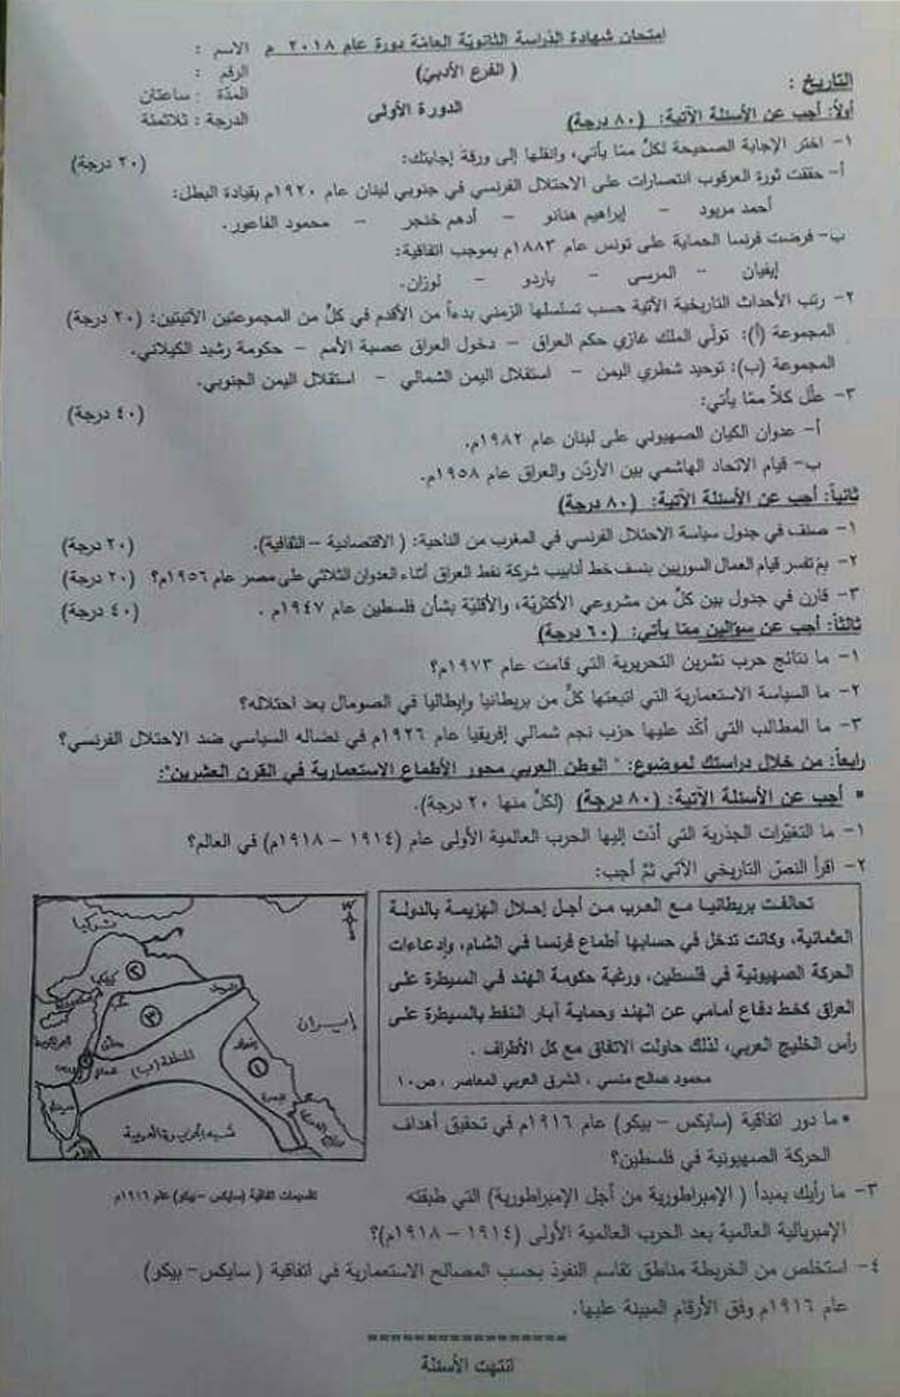 امتحان شهادة الدراسة الثانوية العامة دورة عام ٢٠١٨ م
الاسم :
( الفرع الأدبي)
الرقم :
المدة : ساعتان
التاريخ :
الدورة الأولى
الدرجة : ثلاثمئة
أولاً: أجب عن الأسئلة الآتية: (٨٠ درجة)
١- اختر الإجابة الصحيحة لكلّ ممّا يأتي، وانقلها إلى ورقة إجابتك: (٢٠ درجة)
أ- حققت ثورة العرقوب انتصارات على الاحتلال الفرنسي في جنوبي لبنان عام ١٩٢٠م بقيادة البطل:
أحمد مريود - إبراهيم هنانو - أدهم خنجر - محمود الفاعور.
ب- فرضت فرنسا الحماية على تونس عام ١٨٨٣م بموجب اتفاقية:
إيفيان - المرسى - باردو - لوزان.
٢- رتب الأحداث التاريخية الآتية حسب تسلسلها الزمني بدءاً من الأقدم في كلّ من المجموعتين الآتيتين: (٢٠ درجة)
المجموعة (أ): تولّي الملك غازي حكم العراق - دخول العراق عصبة الأمم - حكومة رشيد الكيلاني.
المجموعة (ب): توحيد شطري اليمن - استقلال اليمن الشمالي - استقلال اليمن الجنوبي.
٣- علّل كلاً ممّا يأتي: (٤٠ درجة)
أ- عدوان الكيان الصهيوني على لبنان عام ١٩٨٢م.
ب- قيام الاتحاد الهاشمي بين الأردن والعراق عام ١٩٥٨م.
ثانياً: أجب عن الأسئلة الآتية: (٨٠ درجة)
١- صنف في جدول سياسة الاحتلال الفرنسي في المغرب من الناحية: ( الاقتصادية - الثقافية). (٢٠ درجة)
٢- بمَ تفسر قيام العمال السوريين بنسف خط أنابيب شركة نفط العراق أثناء العدوان الثلاثي على مصر عام ١٩٥٦م؟ (٢٠ درجة)
٣- قارن في جدول بين كلّ من مشروعي الأكثريّة، والأقليّة بشأن فلسطين عام ١٩٤٧م . (٤٠ درجة)
ثالثاً: أجب عن سؤالين ممّا يأتي: (٦٠ درجة)
١- ما نتائج حرب تشرين التحريرية التي قامت عام ١٩٧٣م؟
٢- ما السياسة الاستعمارية التي اتبعتها كلّ من بريطانيا وإيطاليا في الصومال بعد احتلاله؟
٣- ما المطالب التي أكّد عليها حزب نجم شمالي إفريقيا عام ١٩٢٦م في نضاله السياسي ضد الاحتلال الفرنسي؟
رابعاً: من خلال دراستك لموضوع: " الوطن العربي محور الأطماع الاستعمارية في القرن العشرين":
▪ أجب عن الأسئلة الآتية: (٨٠ درجة) (لكلّ منها ٢٠ درجة).
١- ما التغيّرات الجذرية التي أدّت إليها الحرب العالمية الأولى عام (١٩١٤ - ١٩١٨م) في العالم؟
٢- اقرأ النصّ التاريخي الآتي ثمّ أجب:
تحالفت بريطانيا مع العرب من أجل إحلال الهزيمة بالدولة
العثمانية، وكانت تدخل في حسابها أطماع فرنسا في الشام، وإدعاءات
الحركة الصهيونية في فلسطين، ورغبة حكومة الهند في السيطرة على
العراق كخط دفاع أمامي عن الهند وحماية آبار النفط بالسيطرة على
رأس الخليج العربي، لذلك حاولت الاتفاق مع كل الأطراف .
محمود صالح منسي ، الشرق العربي المعاصر ، ص١٠
تركيا
٢
٣
إيران
المنطقة (ب)
١
شبه الجزيرة العربية
تقسيمات اتفاقية (سايكس - بيكو) عام ١٩١٦م
▪ ما دور اتفاقية (سايكس - بيكو) عام ١٩١٦م في تحقيق أهداف
الحركة الصهيونية في فلسطين؟
٣- ما رأيك بمبدأ ( الإمبراطورية من أجل الإمبراطورية) التي طبقته
الإمبريالية العالمية بعد الحرب العالمية الأولى (١٩١٤ - ١٩١٨م)؟
٤- استخلص من الخريطة مناطق تقاسم النفوذ بحسب المصالح الاستعمارية في اتفاقية ( سايكس- بيكو)
عام ١٩١٦م وفق الأرقام المبينة عليها.
انتهت الأسئلة